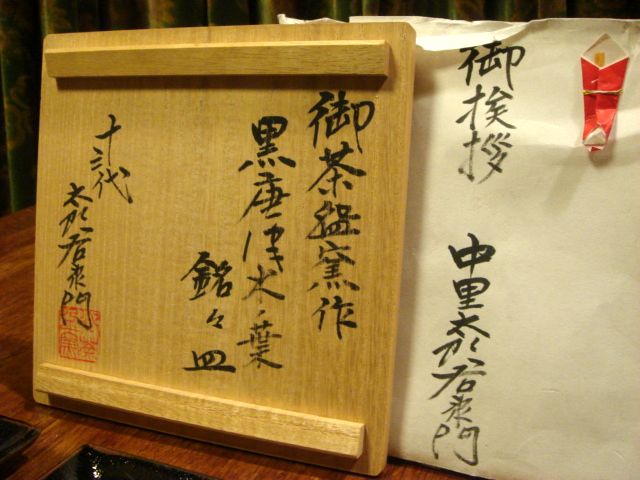 御茶盌窯作
黒唐津木ノ葉
銘々皿
十三代
太郎右衛門
御挨拶
中里太郎右衛門